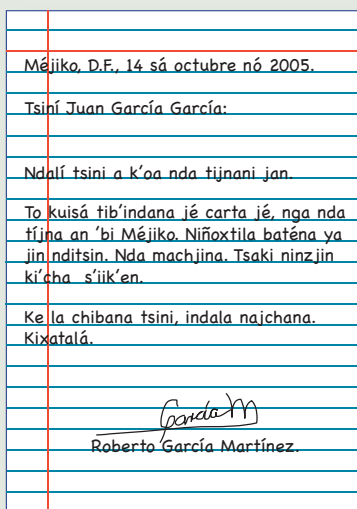 Méjiko, D.F., 14 sá octubre nó 2005.
Tsiní Juan García García:
Ndalí tsini a k’oa nda tijnani jan.
To kuisá tib’indana jé carta jé, nga nda
tíjna an ’bi Méjiko. Niñoxtila baténa ya
jin nditsin. Nda machjina. Tsaki ninzjin
ki’cha s’iik’en.
Ke la chibana tsini, indala najchana.
Kixatalá.
García M
Roberto García Martínez.